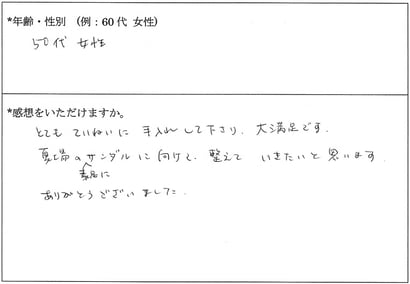 *年齢・性別　(例：60代 女性)
50代 女性
*感想をいただけますか。
とても ていねいに 手入れ して下さり、大満足です。
夏場の サンダル に 向けて、整えて いきたいと 思います。
素足に
ありがとうございました。